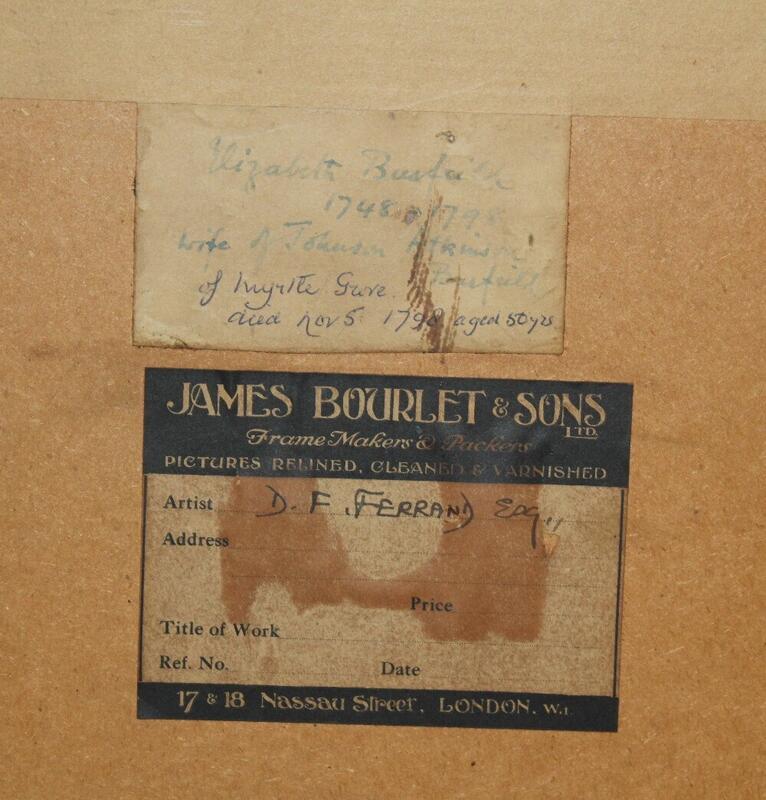 Elizabeth Busfeild
1748 - 1798
wife of Johnson Atkinson
Busfeild
of Myrtle Grove.
died Nov 5. 1798 aged 50 yrs
JAMES BOURLET & SONS
LTD.
Frame Makers & Packers
PICTURES RELINED, CLEANED & VARNISHED
Artist D. F. FERRAND Esq.,,
Address
Price
Title of Work
Ref. No. Date
17 & 18 Nassau Street, LONDON, W.1.